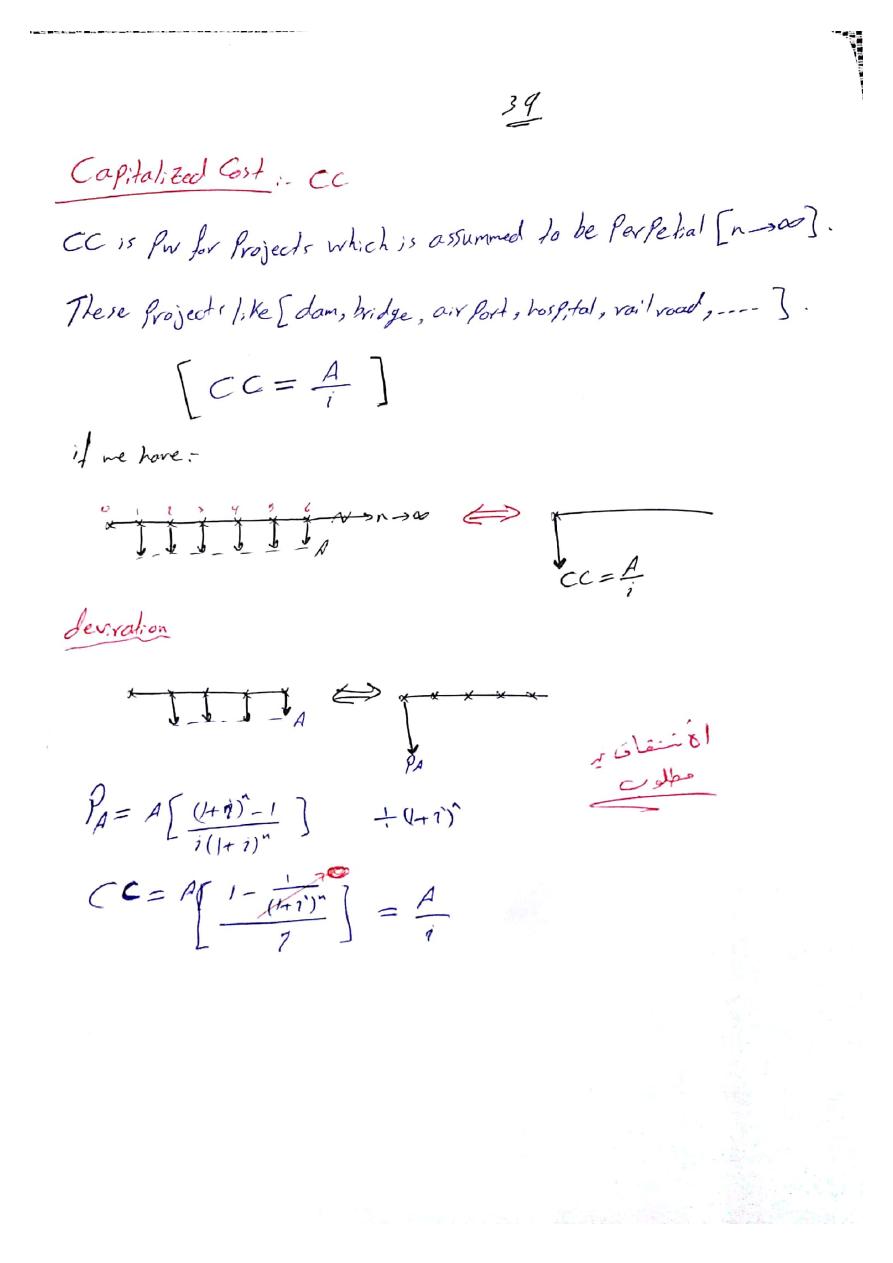 39
Capitalized Cost :- CC
CC is PW for Projects which is assummed to be Perpetial [n→∞].
These Projects like [dam, bridge, airport, hospital, railroad, ----].
[CC = A/i]
if we have:-
0 1 2 3 4 5 6 n→∞ ⇔
A
CC = A/i
deviration
⇔
A
P_A
الأشتقاق
مطلوب
P_A = A[((1+i)^n - 1)/(i(1+i)^n)] ÷ (1+i)^n
CC = A[(1 - 1/(1+i)^n)/i] = A/i